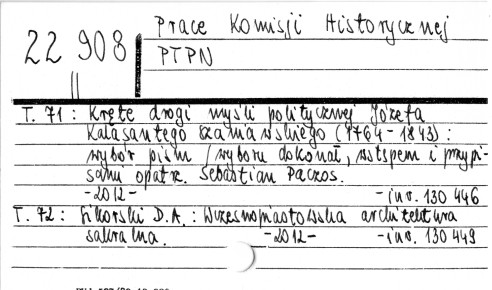 22 908
Prace Komisji Historycznej
PTPN
||
T. 71 : Kręte drogi myśli politycznej Józefa
Kalasantego Szaniawskiego (1764-1843) :
wybór pism / wyboru dokonał, wstępem i przypi-
sami opatrz. Sebastian Paczos.
-2012- -inv. 130 446
T. 72 : Sikorski D.A. : Wczesnopiastowska architektura
sakralna. -2012- -inv. 130 449